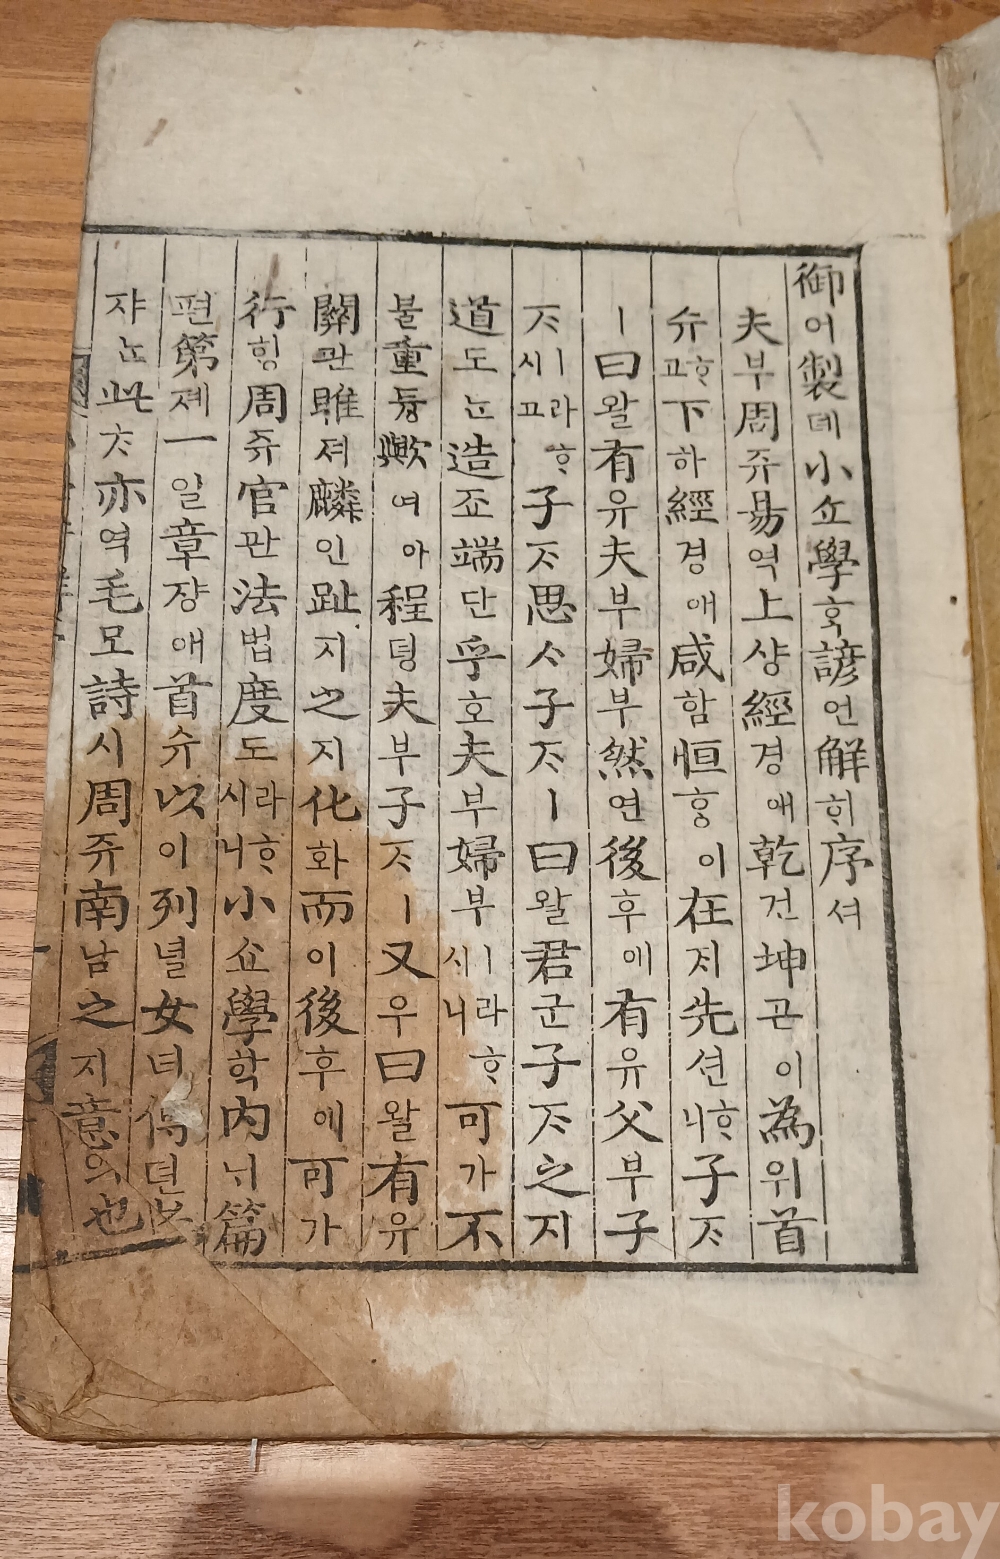 御어製뎨小쇼學ᄒᆞᆨ諺언解ᄒᆡ序셔
夫부周쥬易역上샹經경애乾건坤곤이為위首
슈ᄒᆞ고下하經경애咸함恒ᄒᆞᆼ이在ᄌᆡ先션ᄒᆞ니子ᄌᆞ
ㅣ曰왈有유夫부婦부然연後후에有유父부子
ᄌᆞㅣ라시고ᄒᆞ子ᄌᆞ思ᄉᆞ子ᄌᆞㅣ曰왈君군子ᄌᆞ之지
道도ᄂᆞᆫ造조端단乎호夫부婦부ㅣ라ᄒᆞ시니可가不
블重듕歟여아程뎡夫부子ᄌᆞㅣ又우曰왈有유
關관雎져麟인趾지之지化화而이後후에可가
行ᄒᆡᆼ周쥬官관法법度도ㅣ라ᄒᆞ시니小쇼學학內ᄂᆡ篇
편第뎨一일章쟝애首슈以이列녈女녀傳뎐文
쟈ᄂᆞᆫ此ᄎᆞ亦역毛모詩시周쥬南남之지意의也
kobay